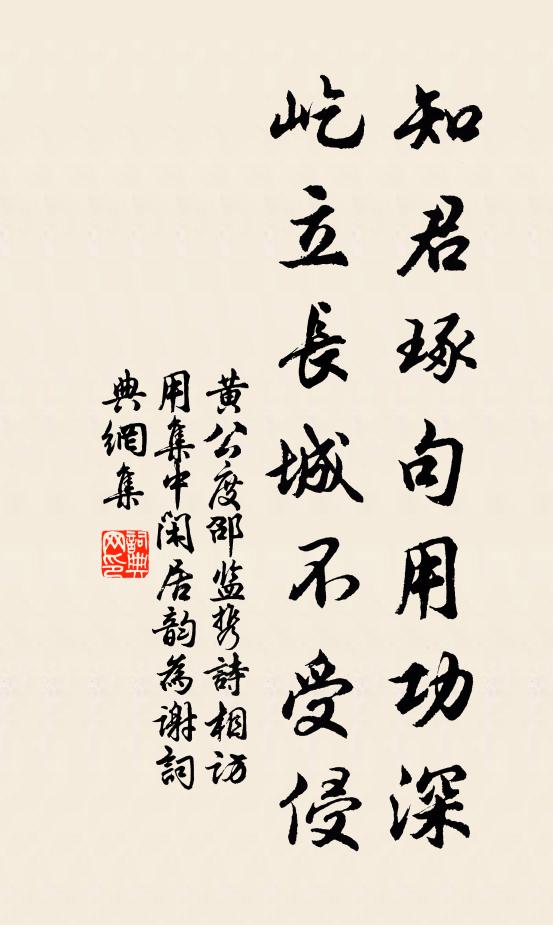 知君琢句用功深
屹立長城不受侵
黄公度邵监携詩相访
用集中閑居韵為谢詞
典網集
詞典網印